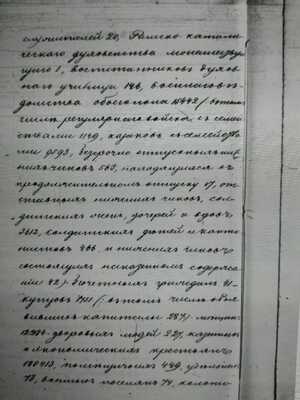 служителей 20, Римско католи-
ческаго духовенства монашеству-
ющаго 1, воспитанниковъ духов-
наго училища 146, военнаго вѣ-
домства обоего пола
числѣ регулярнаго войска съ семей-
ствами 1149, казаковъ съ семейства-
ми безсрочно отпускныхъ ниж-
нихъ чиновъ 563, находящихся въ
продолжительномъ отпуску от-
ставныхъ нижнихъ чиновъ, сол-
датскихъ женъ, дочерей и вдовъ
2612, солдатскихъ дѣтей и канто-
нистовъ 466 и нижнихъ чиновъ
состоящихъ на казенномъ содержа-
нiи 42/ почетныхъ гражданъ 41
купцовъ въ томъ числѣ объя-
вившихъ капиталы мѣщанъ
дворовыхъ людей 227, казенныхъ
и экономическихъ крестьянъ
помѣщичьихъ 449, удѣльныхъ
78, военныхъ поселянъ 74, колони-